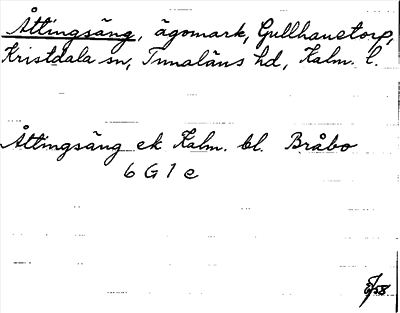 Åttingsäng, ägomark, Gullhanetorp,
Kristdala sn, Tunaläns hd, Kalm. l.
Åttingsäng ek Kalm. bl. Bråbo
6 G 1 e